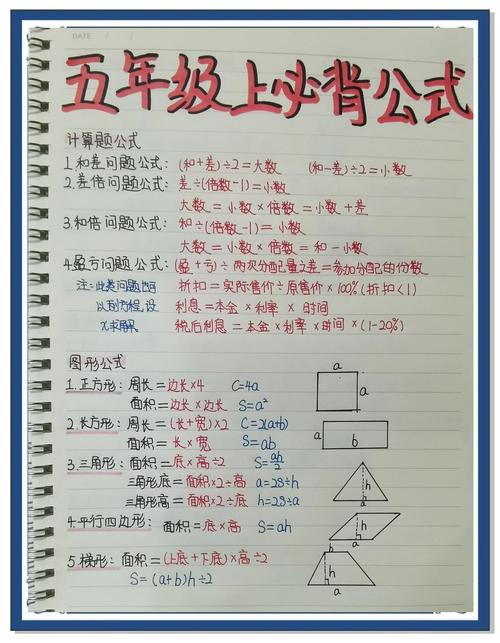 DATE / /
五年级上必背公式
计算题公式
1.和差问题公式: (和+差)÷2=大数 (和-差)÷2=小数
2.差倍问题公式: 差÷(倍数-1)=小数
大数=小数×倍数=小数+差
3.和倍问题公式: 和÷(倍数-1)=小数
大数=小数×倍数=和-小数
4.盈亏问题公式: (盈+亏)÷两次分配量之差=参加分配的份数
注:此类问题也可 折扣=实际售价÷原售价×100%(折扣<1)
以列方程,设 利息=本金×利率×时间
x求解 税后利息=本金×利率×时间×(1-20%)
图形公式
1.正方形: 周长=边长×4 C=4a
面积=边长×边长 S=a²
2.长方形: 周长=(长+宽)×2 C=2(a+b)
面积=长×宽 S=ab
3.三角形: 面积=底×高÷2 S=ah/2
三角形底=面积×2÷高 a=2S÷h
三角形高=面积×2÷底 h=2S÷a
4.平行四边形: 面积=底×高 S=ah
5.梯形: 面积=(上底+下底)×高÷2
S=(a+b)h÷2
a
a
a
b
h
a
h
a
b
h
a